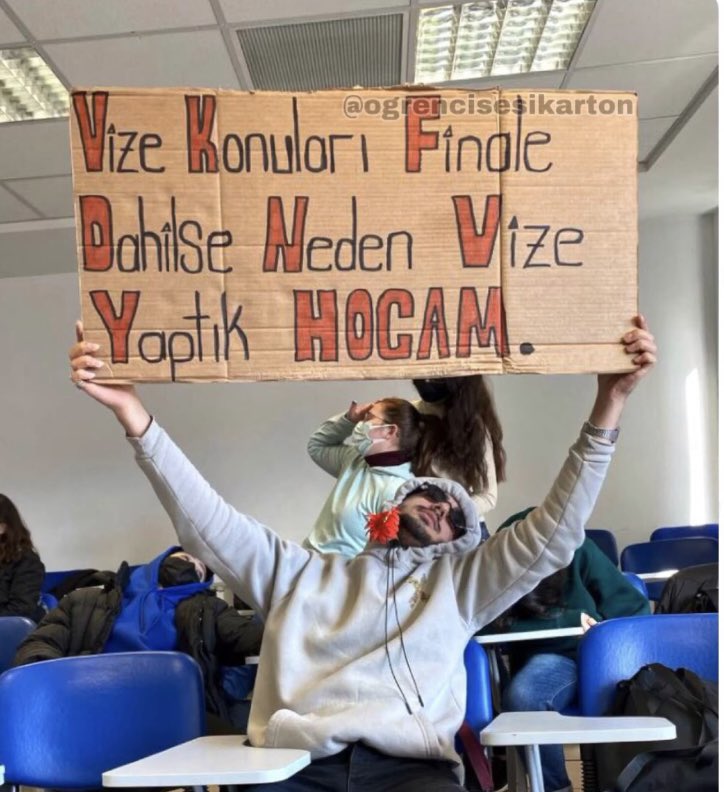 @ogrencisesikarton
Vize Konuları Finale
Dahilse Neden Vize
Yaptık HOCAM.